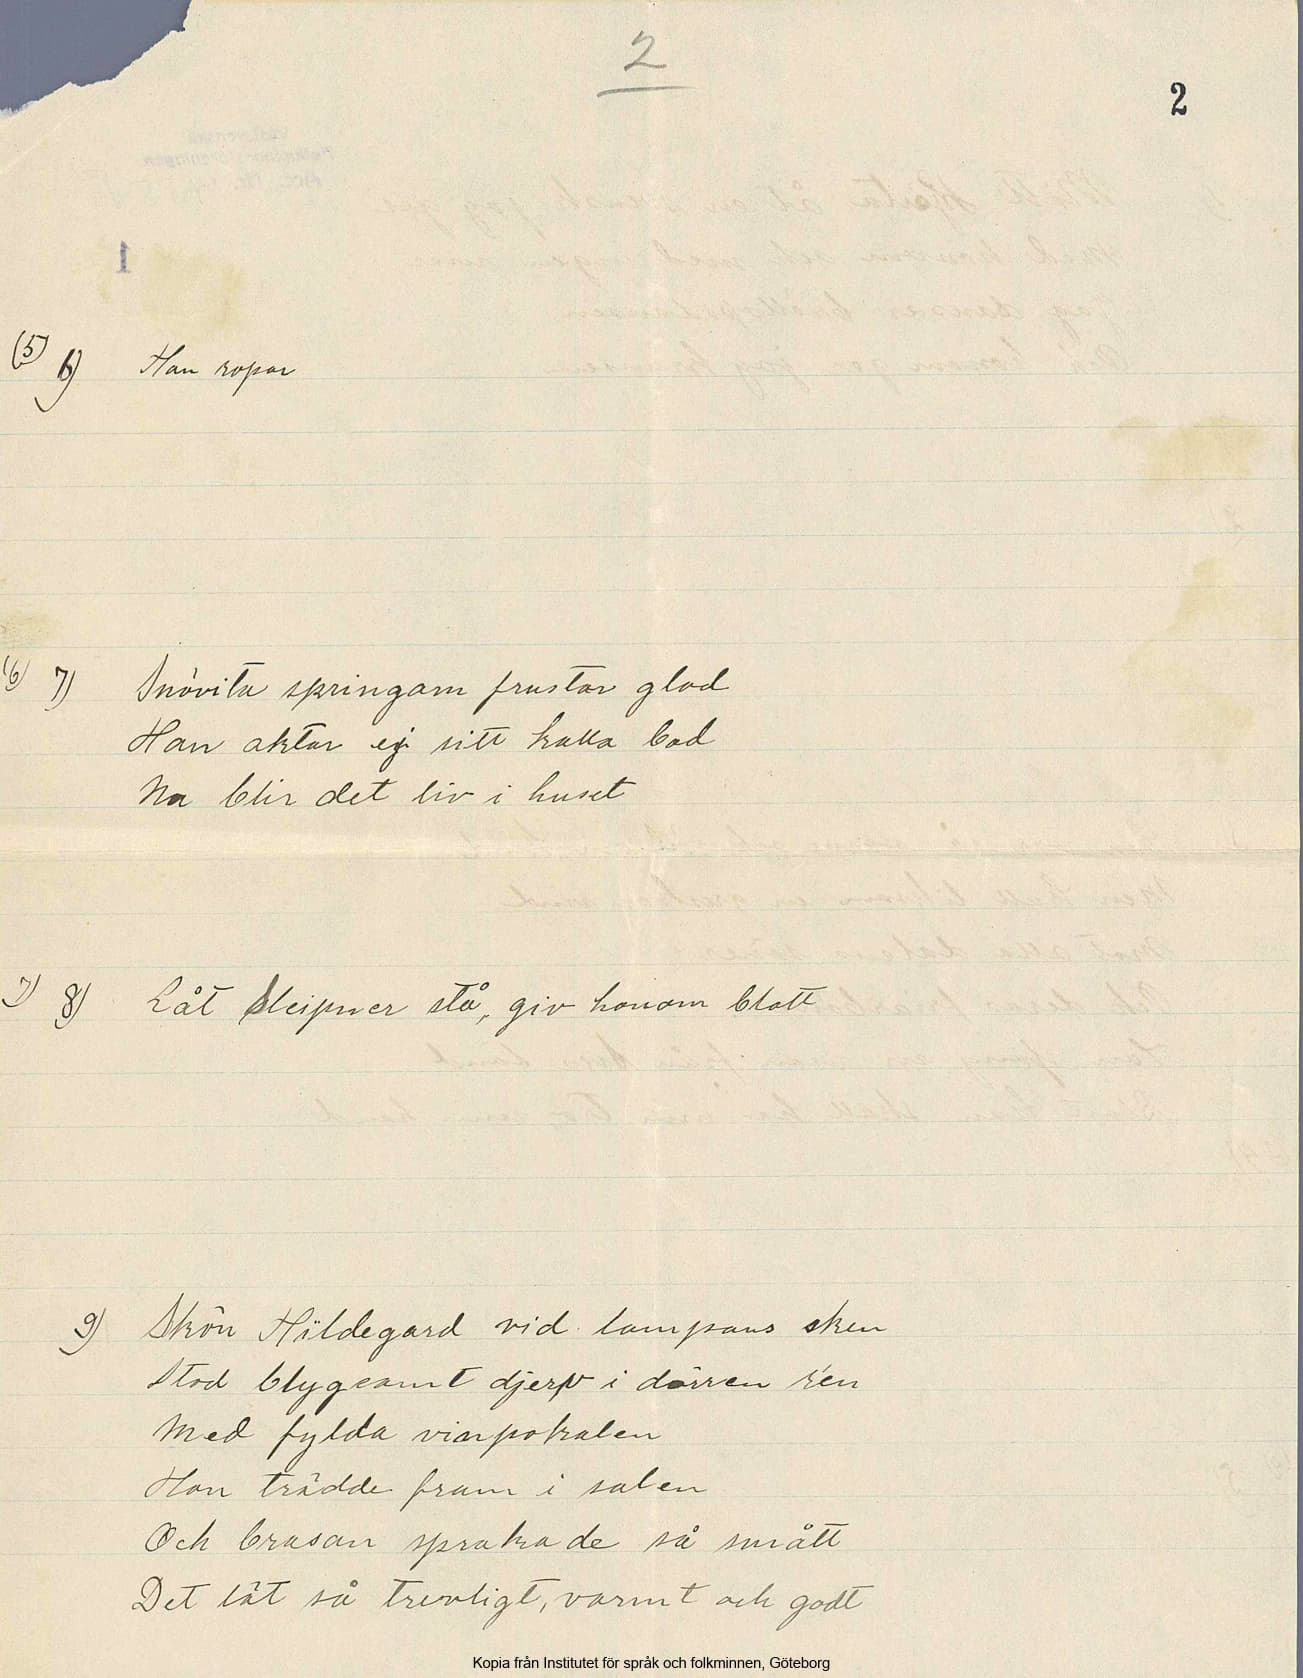 2
2
1
(5) 6) Han ropar
(6) 7) Snövita springarn frustar glad
Han aktar ej sitt kalla bad
Nu blir det liv i huset
7) 8) Låt Sleipner stå, giv honom blott
9) Skön Hildegard vid lampans sken
Stod blygsamt djerv i dörren ren
Med fylda vinpokalen
Hon trädde fram i salen
Och brasan sprakade så smått
Det lät så trevligt, varmt och godt
Kopia från Institutet för språk och folkminnen, Göteborg